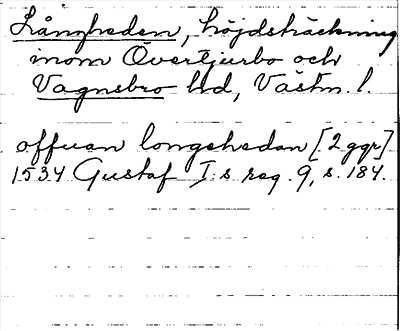 Långheden, höjdsträckning
inom Övertjurbo och
Vagnsbro hd, Västm. l.
offuan longehedan [2 ggr]
1534 Gustaf I:s reg. 9, s. 184.